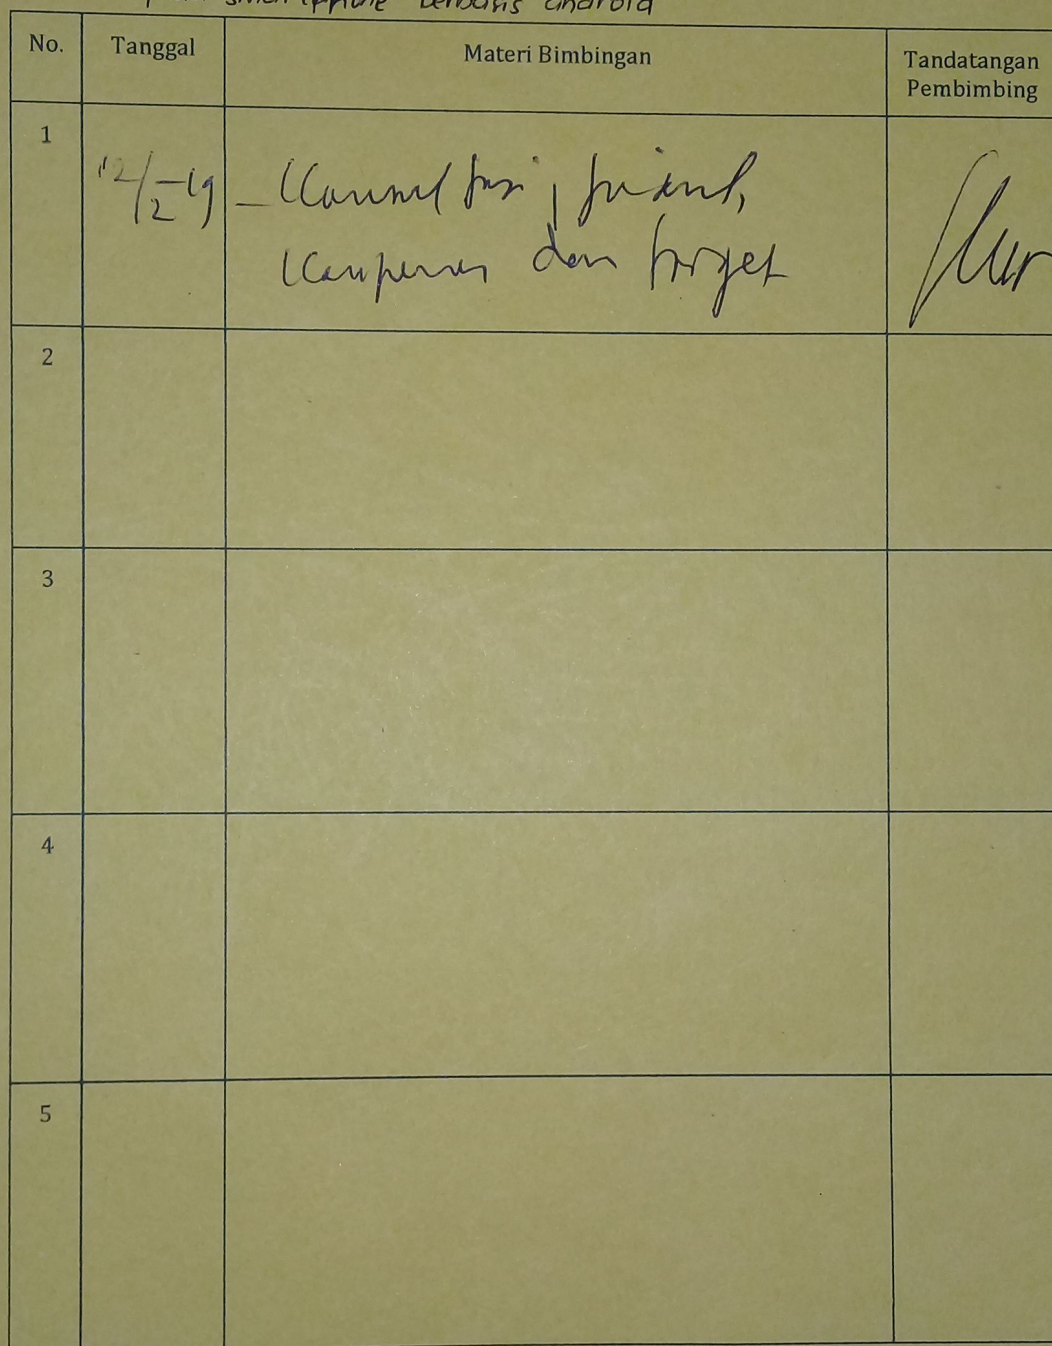 smartphone berbasis android
No.
Tanggal
Materi Bimbingan
Tandatangan
Pembimbing
1
12/2-19
- Konsultasi, judul,
dan target
2
3
4
5